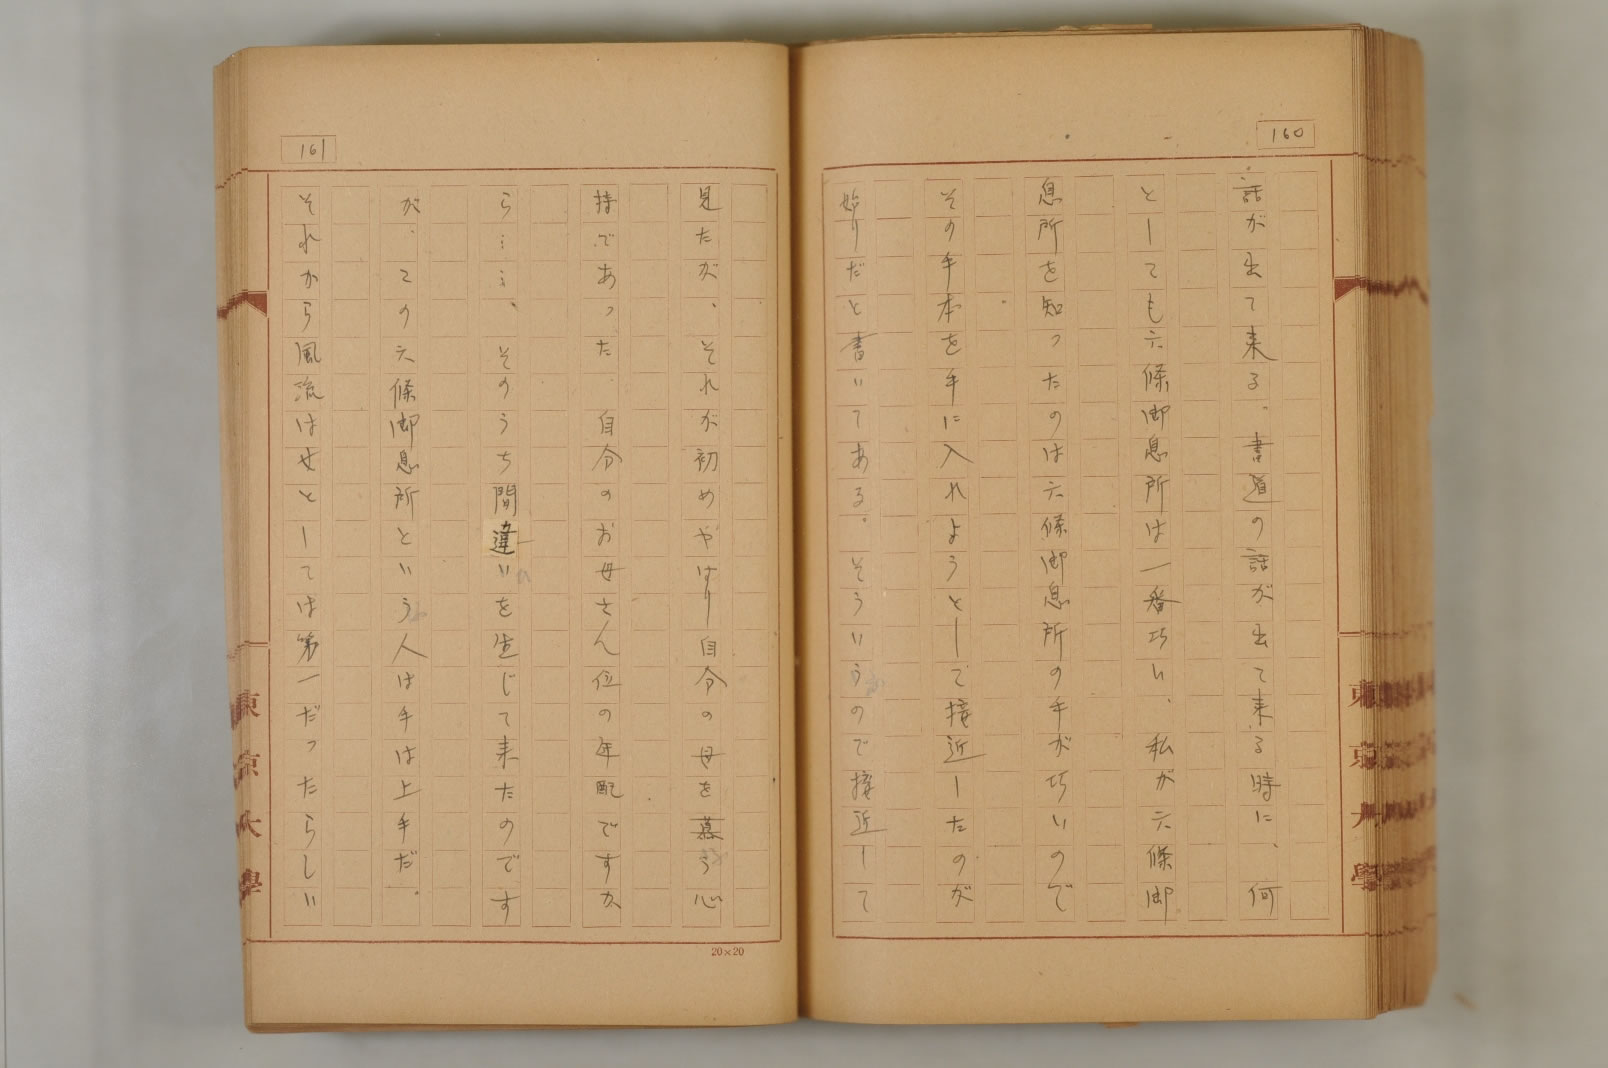 160
話が出て来る、書道の話が出て来る時に、何
としても六條御息所は一番巧い、私が六條御
息所を知ったのは六條御息所の手が巧いので
その手本を手に入れようとして接近したのが
始りだと書いてある。そういうので接近して
東京大學
161
見たが、それが初めやはり自分の母を慕う心
持であった 自分のお母さん位の年配ですか
ら……、そのうち間違いを生じて来たのです
が、この六條御息所という人は手は上手だ、
それから風流は女としては第一だったらしい
東京大學
20×20